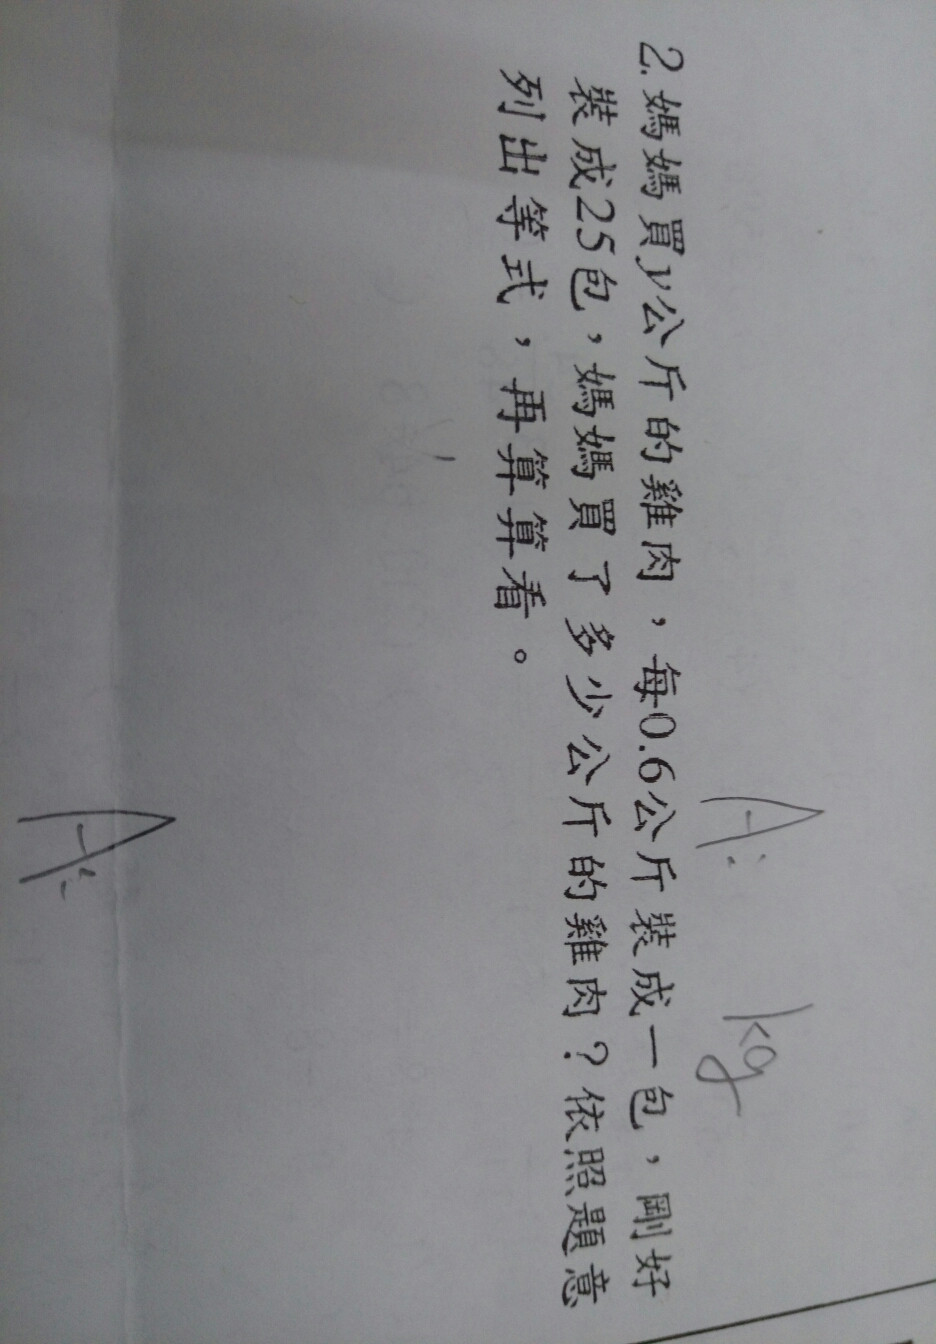 A: kg
2.媽媽買y公斤的雞肉，每0.6公斤裝成一包，剛好
裝成25包，媽媽買了多少公斤的雞肉？依照題意
列出等式，再算算看。
A: